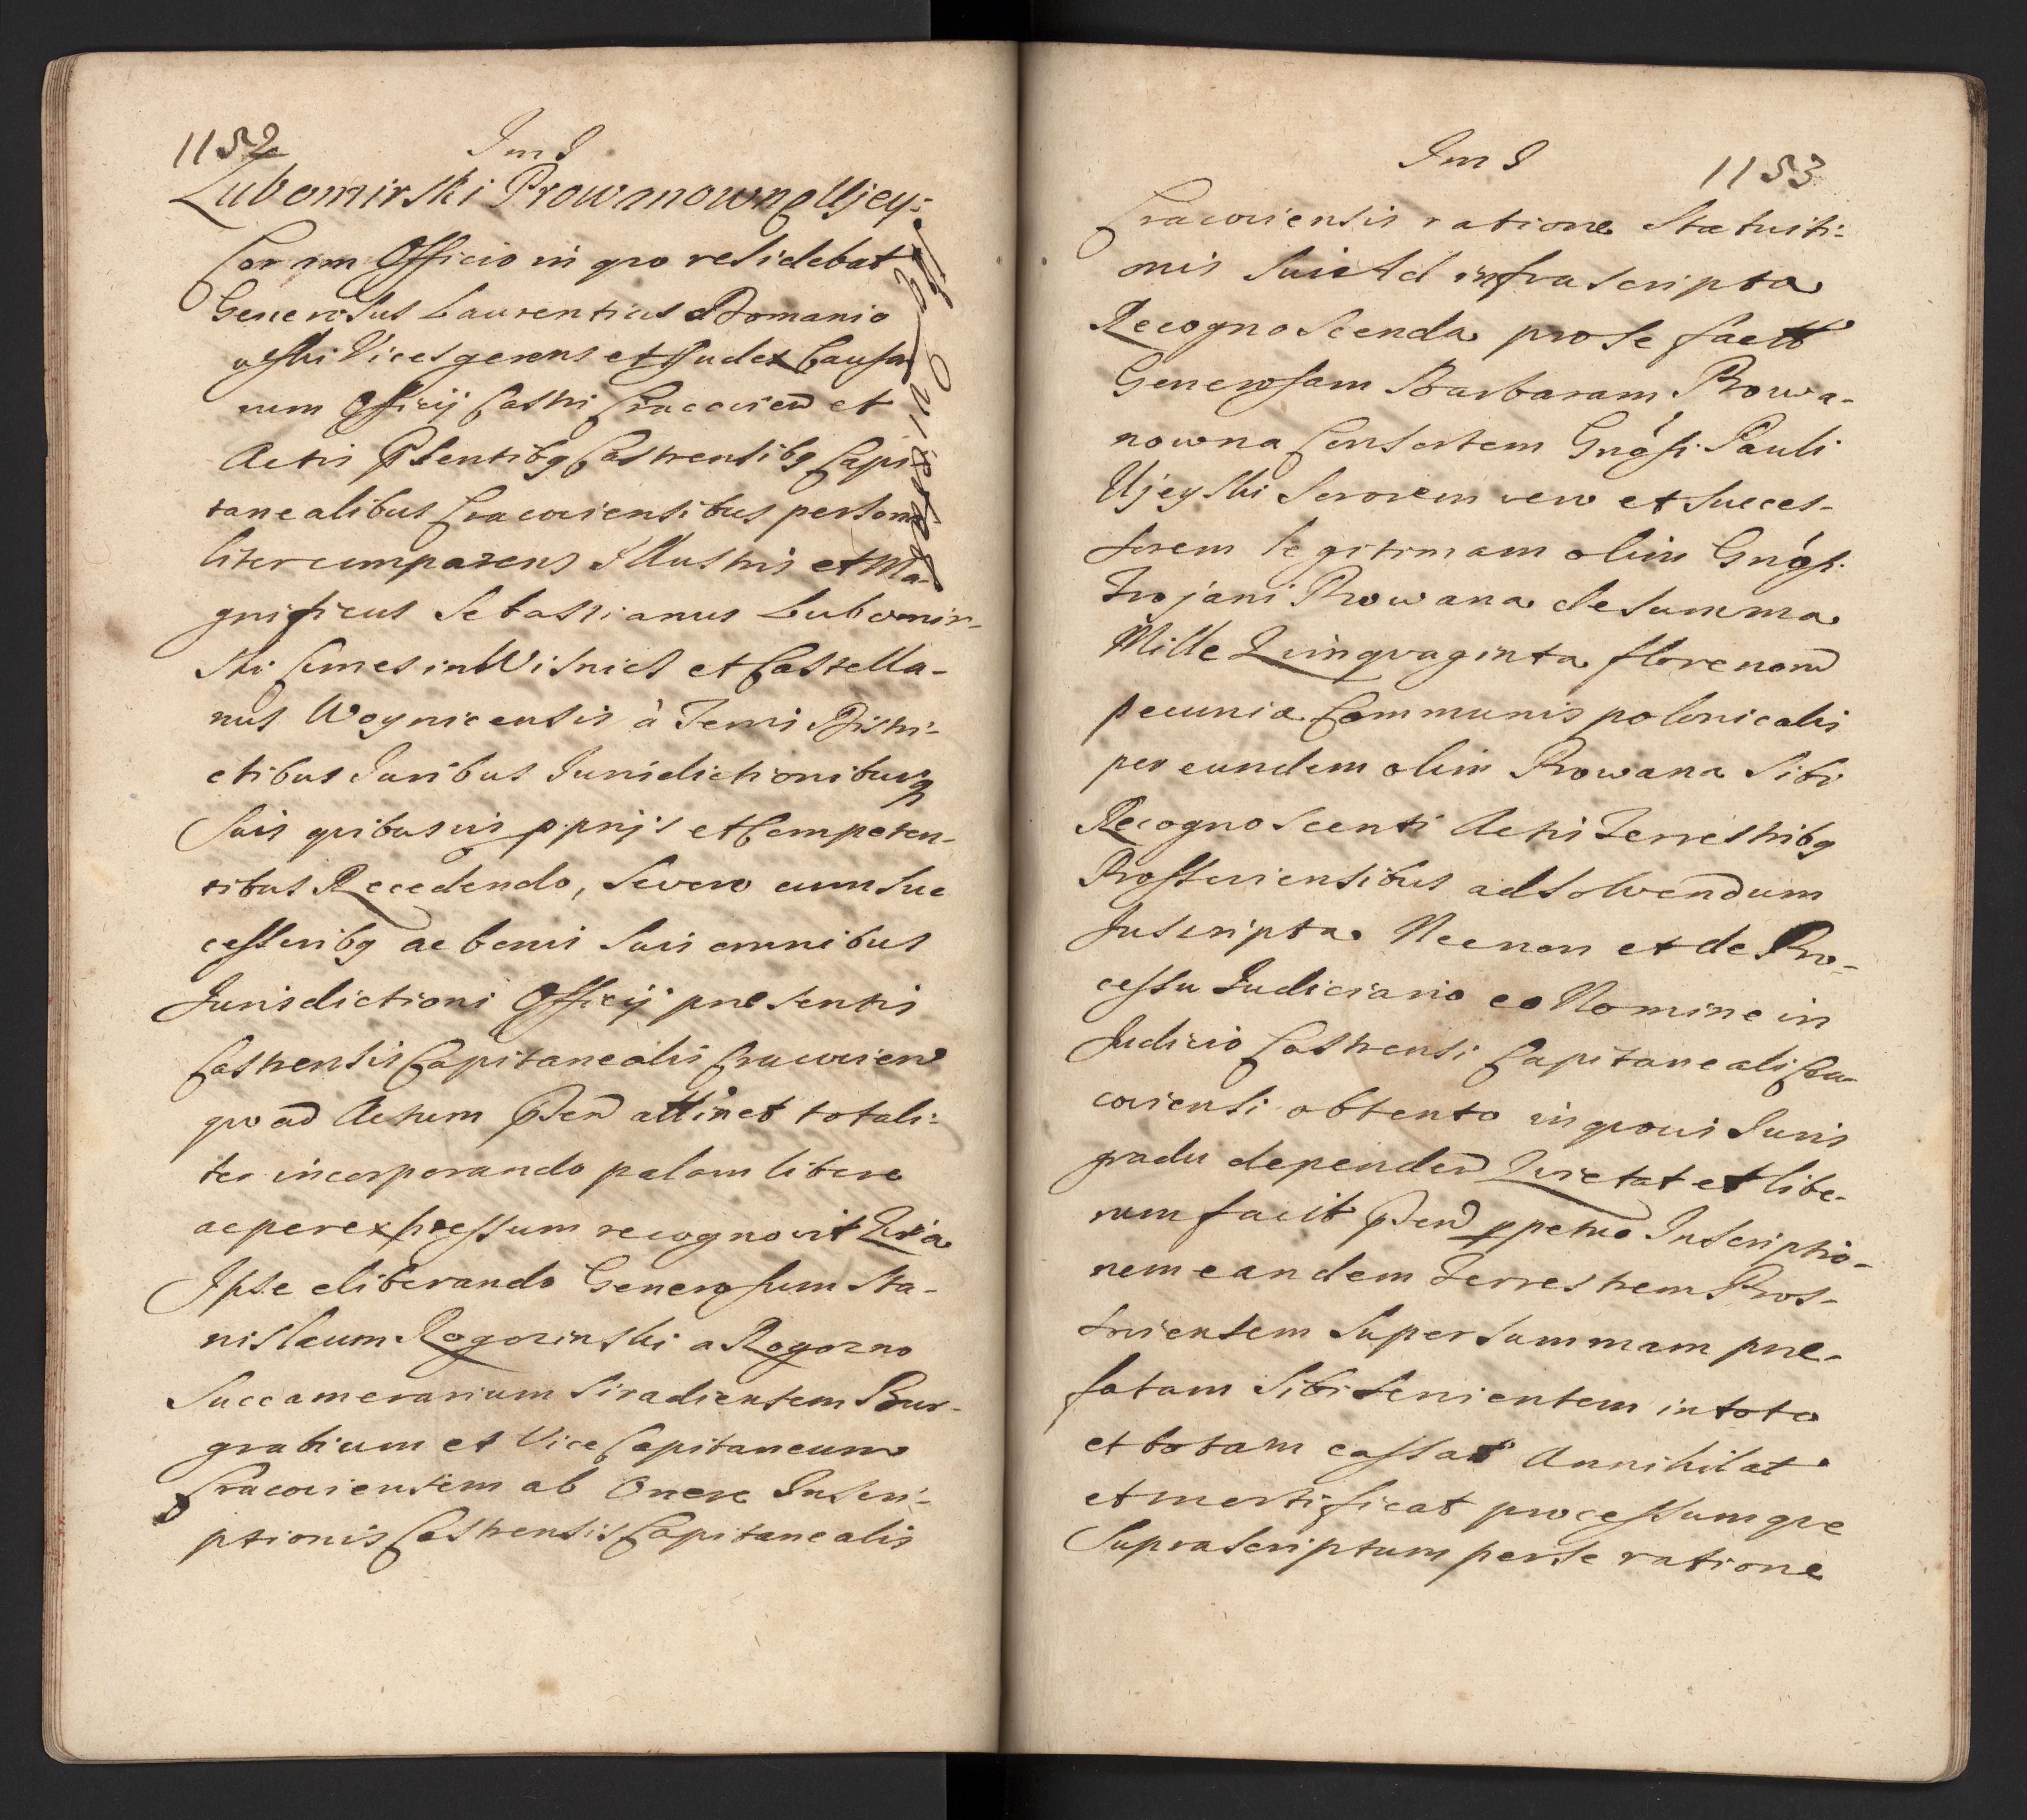 1152
Lubomirski Prowanowna Ujey:
Coram Officio in quo residebat
Generosus Laurentius a Domanio
wski Vices gerens et Judex Causa
rum Officij Castri Cracovien et
Actis Psentibq Castrensibq Capi
tanealibus Cracoviensibus persona
liter comparens Illustris et Ma
gnificus Sebastianus Lubomir-
ski Comes in Wisnicz et Castella-
nus Woynicensis à Terris Distri-
ctibus Juribus Jurisdictionibusq
suis quibusuis pprijs et Competen-
tibus Recedendo, se vero cum suc
cessoribq ac bonis suis omnibus
Jurisdictioni Officij præsentis
Castrensis Capitanealis Cracovien
quoad Actum Psen attinet totali:
ter incorporando palam libere
ac per expressum recognovit Quia
Ipse eliberando Generosum Sta-
nislaum Rogozinski a Rogozno
Succamerarium Siradiensem Bur-
grabium et Vice Capitaneum
Cracoviensem ab Onere Inscri-
ptionis Castrensis Capitanealis
1153
Cracoviensis ratione Statuiti-
onis sui Ad infra scripta
Recognoscenda pro se factæ
Generosam Barbaram Prowa-
nowna Consortem Gnósi Pauli
Ujeyski sororem vero et succes-
sorem legitimam olim Gnósi
Trojani Prowana de summa
Mille Quinquaginta florenorū
pecuniæ Communis polonicalis
per eundem olim Prowana sibi
Recognoscenti Actis Terrestribq
Prossoviensibus ad solvendum
Inscripta Necnon et de Pro-
cessu Judiciario eo Nomine in
Judicio Castrensi Capitaneali Cra-
coviensi obtento in quovis Juris
gradu dependen Quietat et libe-
rum facit Psen ppetuo Inscriptio-
nem eandem Terrestrem Pros-
soviensem super summam præ-
fatam sibi servientem in toto
et totam cassat Annihilat
et mortificat processumque
Suprascriptum per se ratione